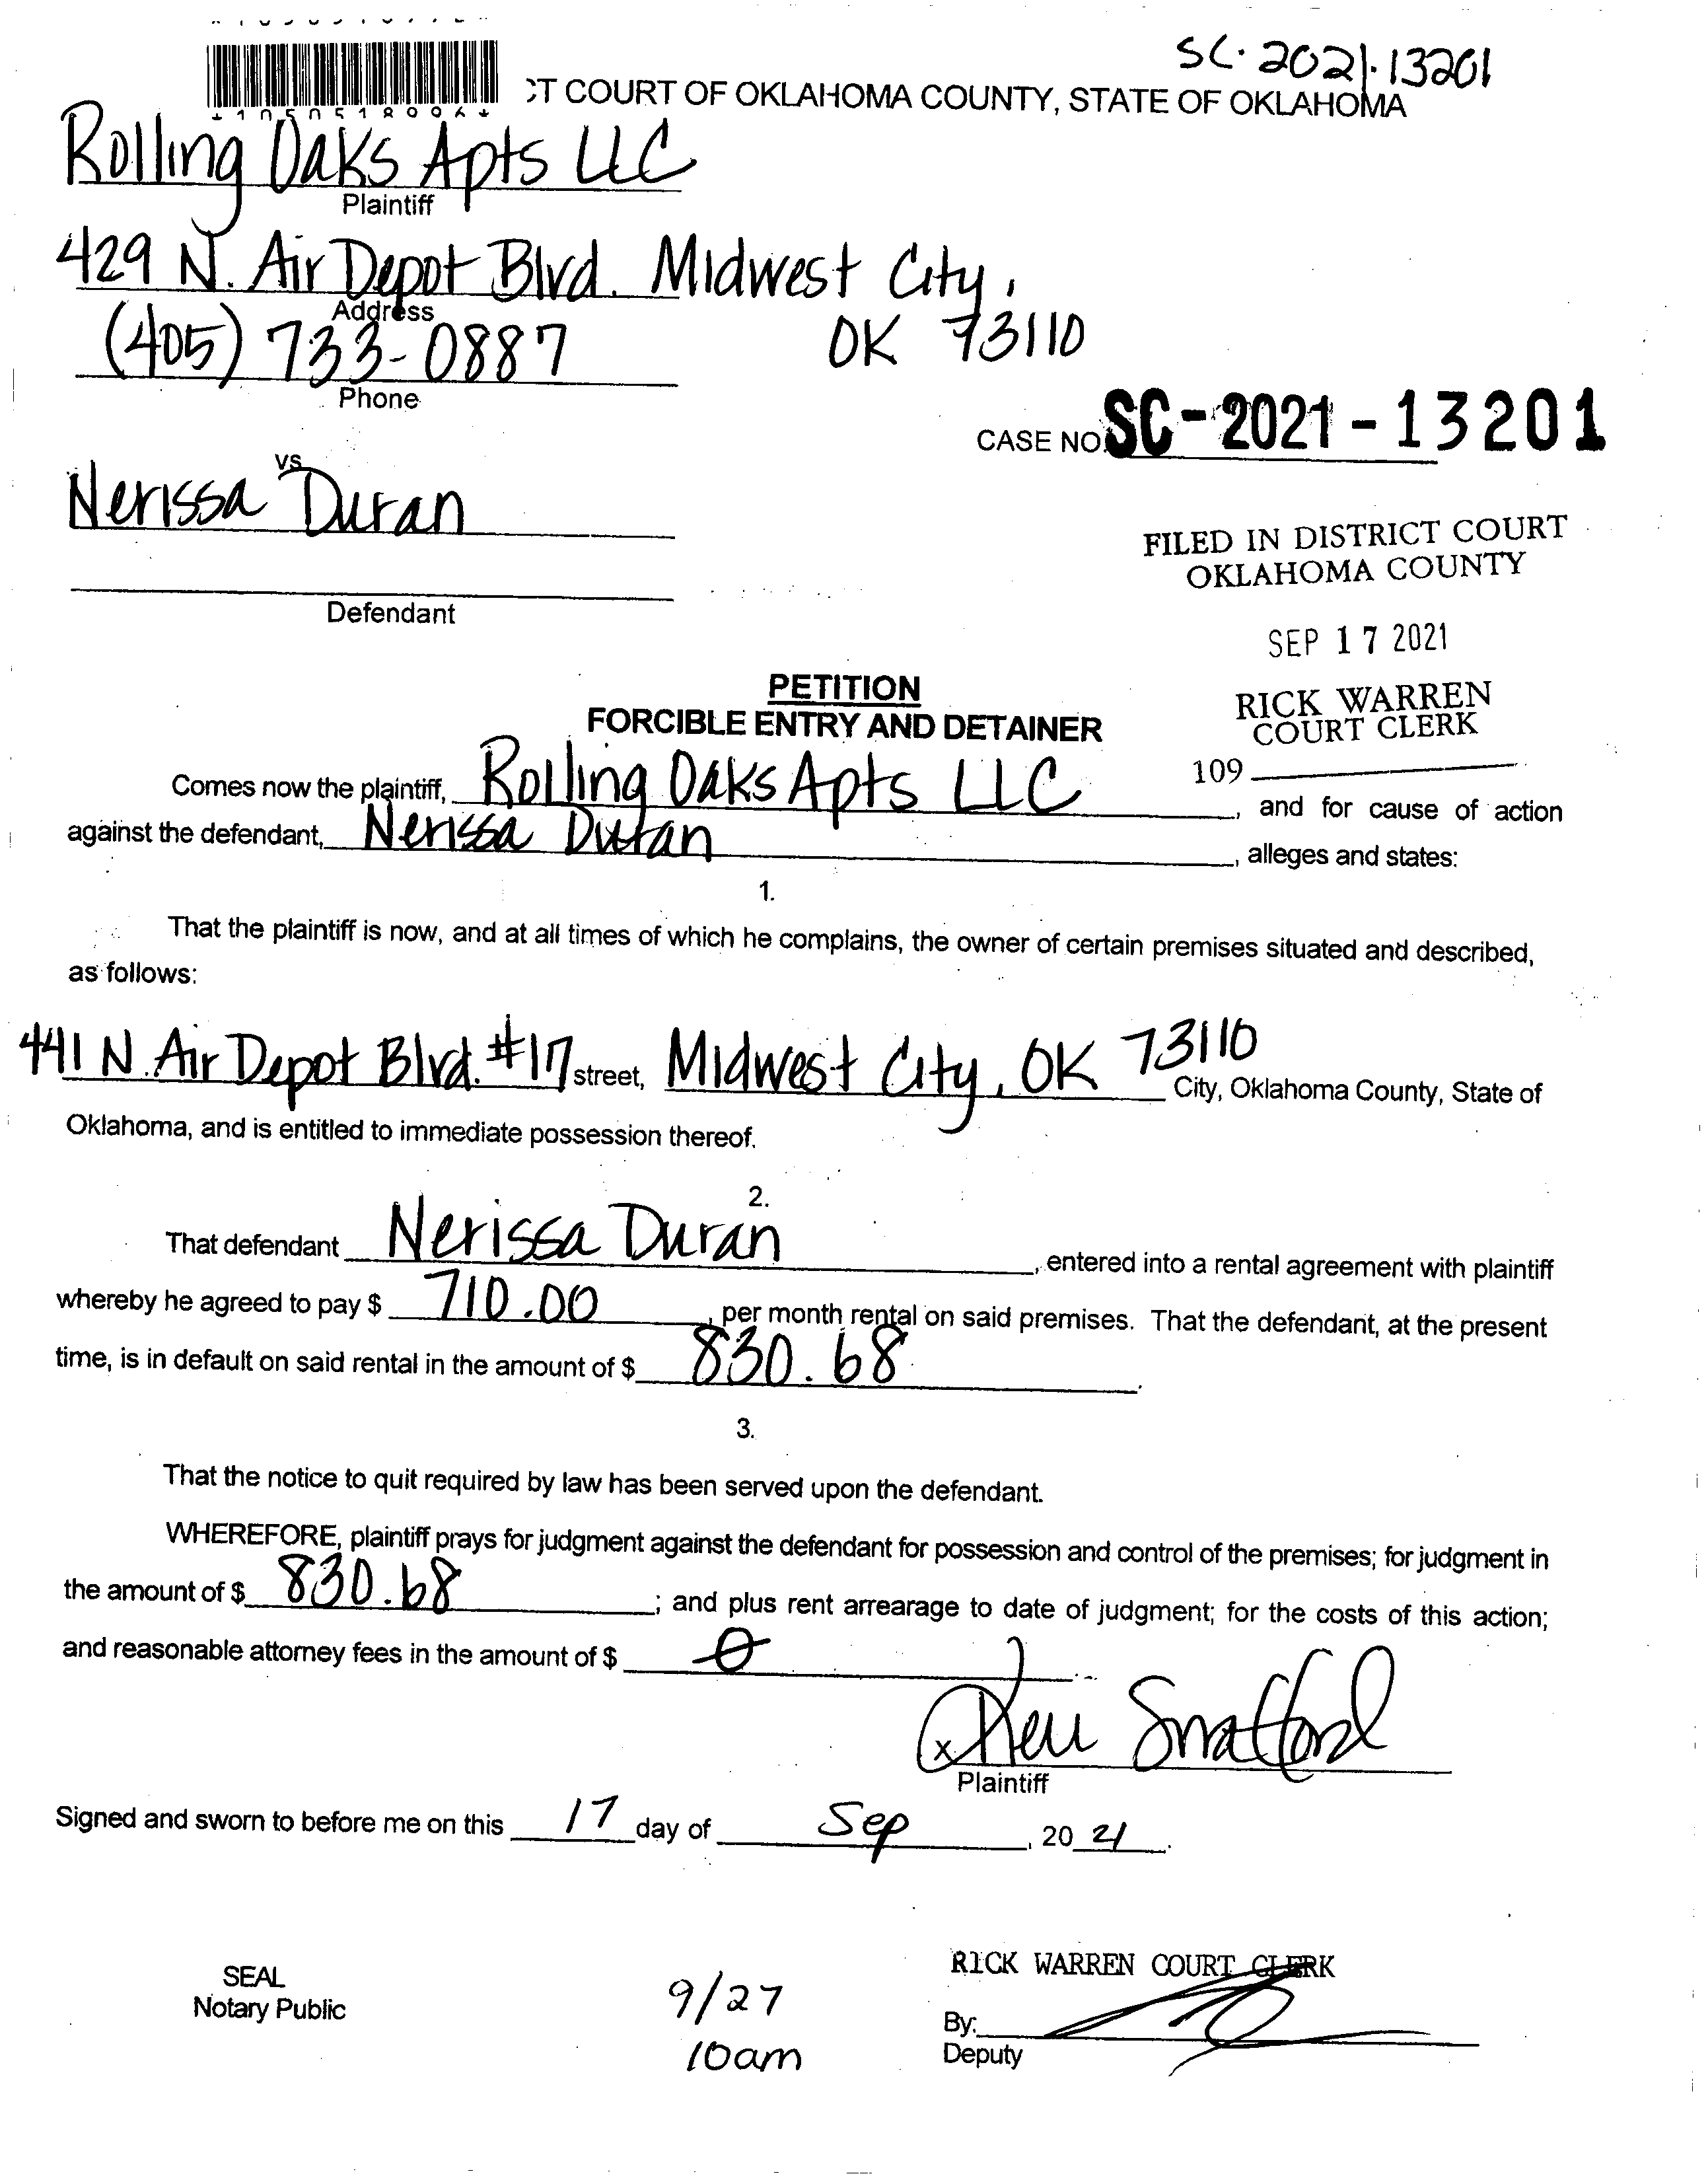 SC-2021-13201
CT COURT OF OKLAHOMA COUNTY, STATE OF OKLAHOMA
Rolling Oaks Apts LLC
Plaintiff
429 N. Air Depot Blvd. Midwest City,
Address
(405) 733-0887 OK 73110
Phone
CASE NO. SC-2021-13201
vs
Nerissa Duran
FILED IN DISTRICT COURT
OKLAHOMA COUNTY
Defendant
SEP 17 2021
PETITION
FORCIBLE ENTRY AND DETAINER
RICK WARREN
COURT CLERK
109
Comes now the plaintiff, Rolling Oaks Apts LLC, and for cause of action
against the defendant, Nerissa Duran, alleges and states:
1.
That the plaintiff is now, and at all times of which he complains, the owner of certain premises situated and described,
as follows:
441 N. Air Depot Blvd. #17 street, Midwest City, OK 73110 City, Oklahoma County, State of
Oklahoma, and is entitled to immediate possession thereof.
2.
That defendant Nerissa Duran, entered into a rental agreement with plaintiff
whereby he agreed to pay $ 710.00, per month rental on said premises. That the defendant, at the present
time, is in default on said rental in the amount of $ 830.68.
3.
That the notice to quit required by law has been served upon the defendant.
WHEREFORE, plaintiff prays for judgment against the defendant for possession and control of the premises; for judgment in
the amount of $ 830.68; and plus rent arrearage to date of judgment; for the costs of this action;
and reasonable attorney fees in the amount of $ 0
x
Plaintiff
Signed and sworn to before me on this 17 day of Sep, 20 21.
RICK WARREN COURT CLERK
SEAL
Notary Public
9/27
10am
By:
Deputy